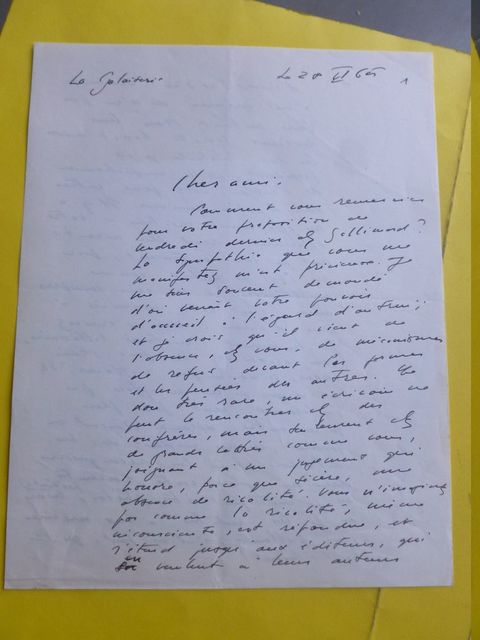 La Galaiterie Le 28 VI 65 1
Cher ami.
Comment vous remercier
pour votre proposition de
vendredi dernier chez Gallimard?
La sympathie que vous me
manifestez m'est précieuse. Je
me suis souvent demandé
d'où venait votre pouvoir
d'accueil à l'égard d'autrui;
et je crois qu'il vient de
l'absence, chez vous, de mécanismes
de refus devant les formes
et les pensées des autres. Ce
don très rare, un écrivain ne
peut le rencontrer chez des
confrères, mais seulement chez
de grands lettrés comme vous,
joignant à un jugement qui
honore, parce que sincère, une
absence de rivalité. Vous n'imaginez
pas comme la rivalité, même
inconsciente, est répandue, et
s'étend jusqu'aux éditeurs, qui
en veulent à leurs auteurs